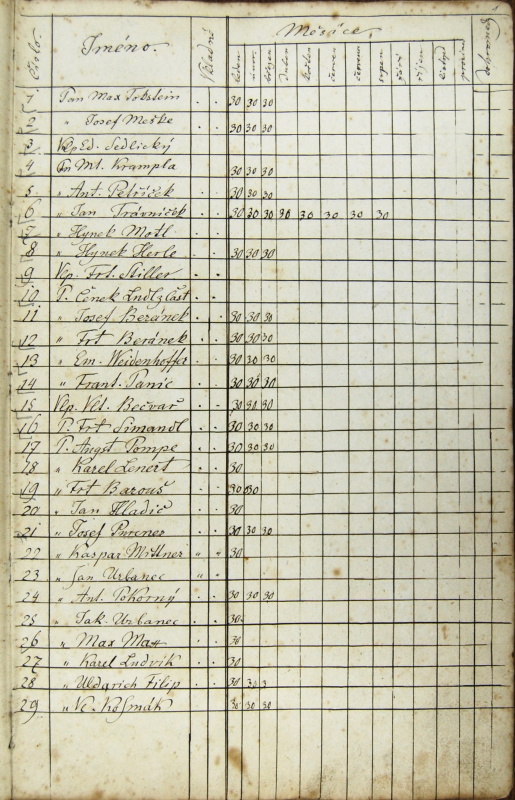 Číslo. Jméno. Vkladné Měsíce.
leden únor březen duben květen červen červenec srpen září říjen listopad prosinec dohromady
1 Pan Max Tobstein . . 30 30 30
2 " Josef Meške . . 30 30 30
3 Vlp Ed. Sedlický . .
4 Pn Mt. Krampla . . 30 30 30
5 " Ant. Petříček . . 30 30 30
6 " Jan Trávníček . . 30 30 30 30 30 30 30 30
7 " Hynek Motl . .
8 " Hynek Herle . . 30 30 30
9 Vlp. Frt. Stiller . .
10 P. Čeněk . .
11 " Josef Beránek . . 30 30 30
12 " Frt Beránek . . 30 30 30
13 " Em. Weidenhoffer . . 30 30 30
14 " Frant. Panic . . 30 30 30
15 Vlp. Vlt. Bečvař . . 30 30 30
16 P. Frt Simandl . . 30 30 30
17 P. Angst Pompe . . 30 30 30
18 " Karel Lenert . . 30
19 " Frt Barouš . . 30 30
20 " Jan Hladic . . 30
21 " Josef Purener . . 30 30 30
22 " Kašpar Mittner " " 30
23 " Jan Urbanec " "
24 " Ant. Pokorný . . 30 30 30
25 " Jak. Urbanec . . 30
26 " Max Max . . 30
27 " Karel Ludvik . . 30
28 " Uldgrich Filip . . 30 30 3
29 " Vc. Kosmák . . 30 30 30